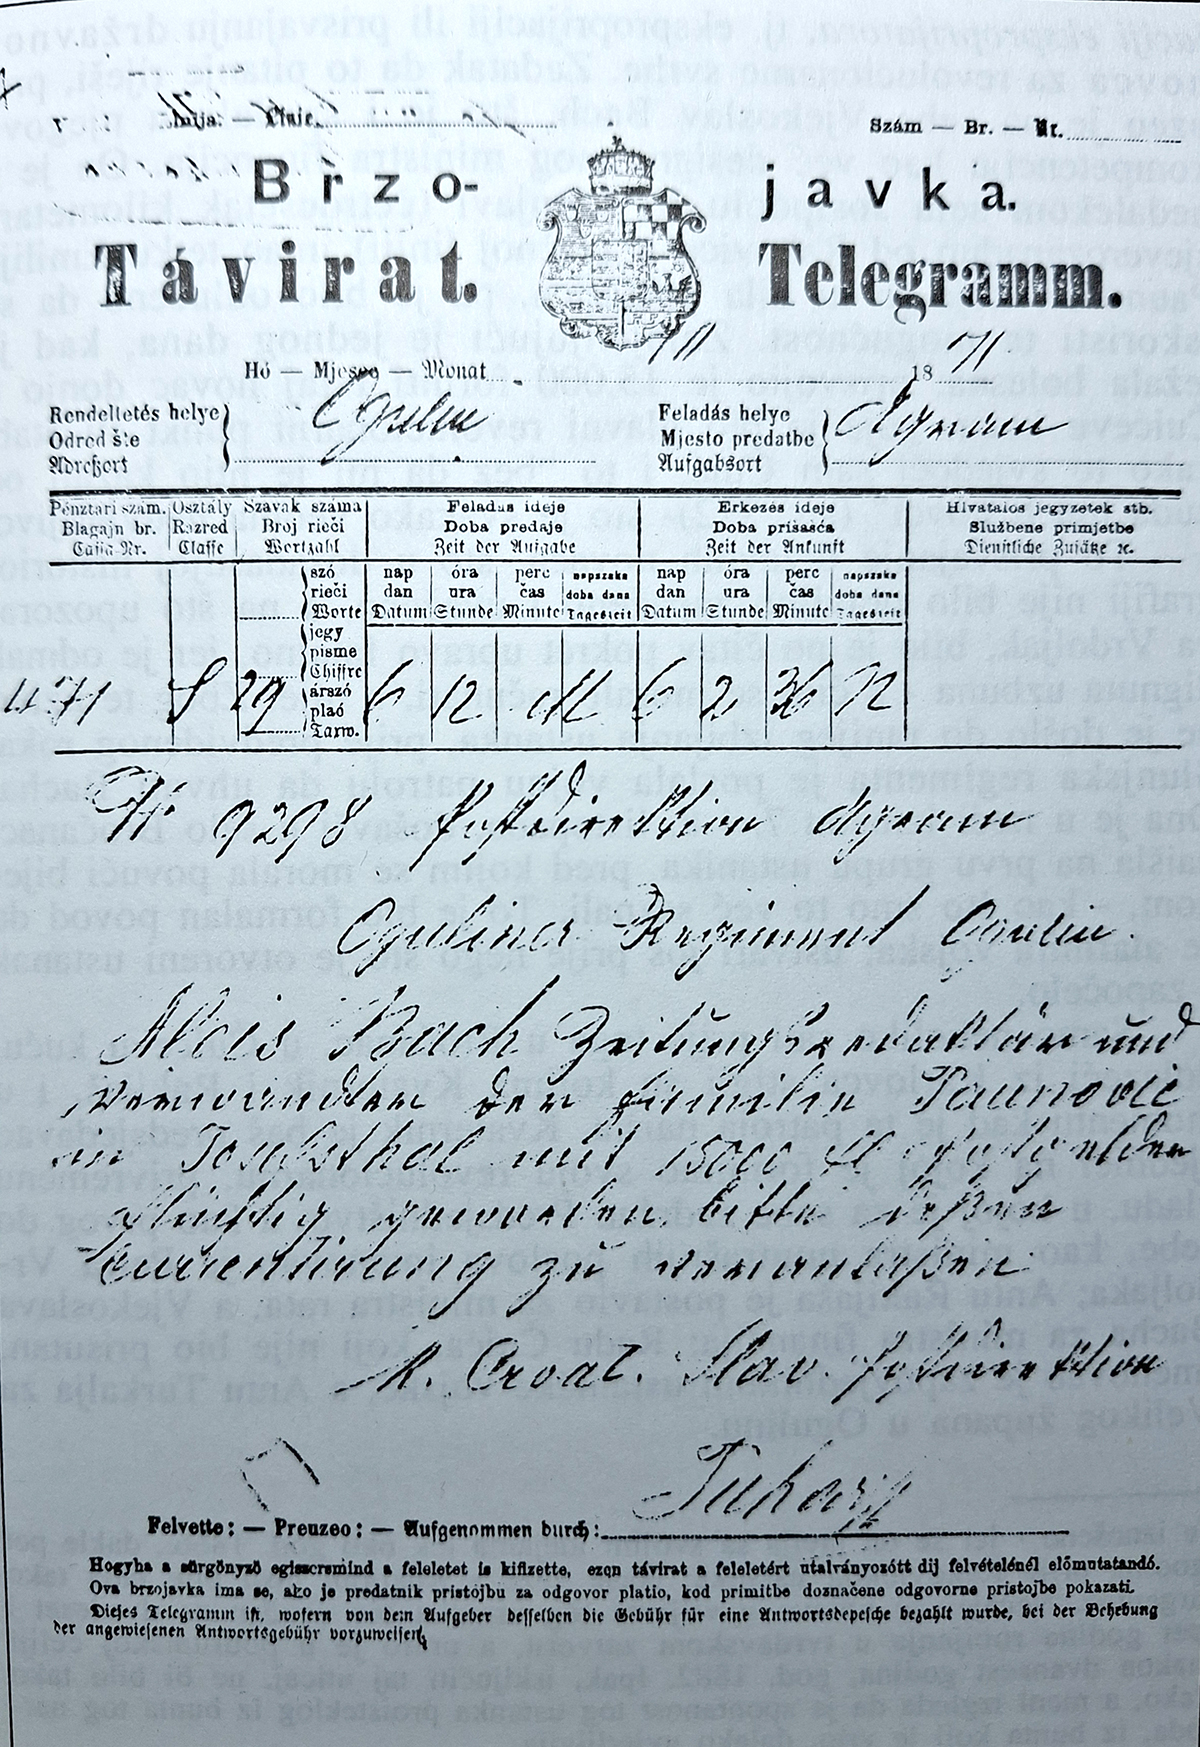 Linija. — Linie.
Szám — Br. — Nr.
Brzo- javka.
Távirat. Telegramm.
Hó — Mjesec — Monat 10 1871
Rendeltetés helye
Odred šte
Adreßort
Ogulin
Feladás helye
Mjesto predatbe
Aufgabsort
Agram
Pénztári szám. Osztály Szavak száma Feladás ideje Érkezés ideje Hivatalos jegyzetek stb.
Blagajn br. Razred Broj rieči Doba predaje Doba prisasća Službene primjetbe
Cassa-Nr. Classe Wortzahl Zeit der Aufgabe Zeit der Ankunft Dienstliche Zusätze ꝛc.
szó nap óra perc napszaka nap óra perc napszaka
rieči dan ura čas doba dana dan ura čas doba dana
Worte Datum Stunde Minute Tageszeit Datum Stunde Minute Tageszeit
jegy
pisme
Chiffre
árszó
plaó
Taxw.
471 S 29 6 12 M 6 2 36 N
Nr 9298 Postdirektion Agram
Oguliner Regiment Ogulin.
Alois Bach Zeitungsredaktär und
Verwandter der Familie Vaunović
in Josefsthal mit 15000 fl Postgelder
flüchtig geworden, bitte deßen
Currentirung zu veranlaßen
K. Croat. Slav. Postdirektion
Felvette: — Preuzeo: — Aufgenommen durch:
Hogyha a sürgönyző egiszersmind a feleletet is kifizette, ezen távirat a feleletért utalványozótt dij felvételénél előmutatandó.
Ova brzojavka ima se, ako je predatnik pristojbu za odgovor platio, kod primitbe doznačene odgovorne pristojbe pokazati.
Dieses Telegramm ist, wofern von dem Aufgeber desselben die Gebühr für eine Antwortsdepesche bezahlt wurde, bei der Behebung
der angewiesenen Antwortsgebühr vorzuweisen.